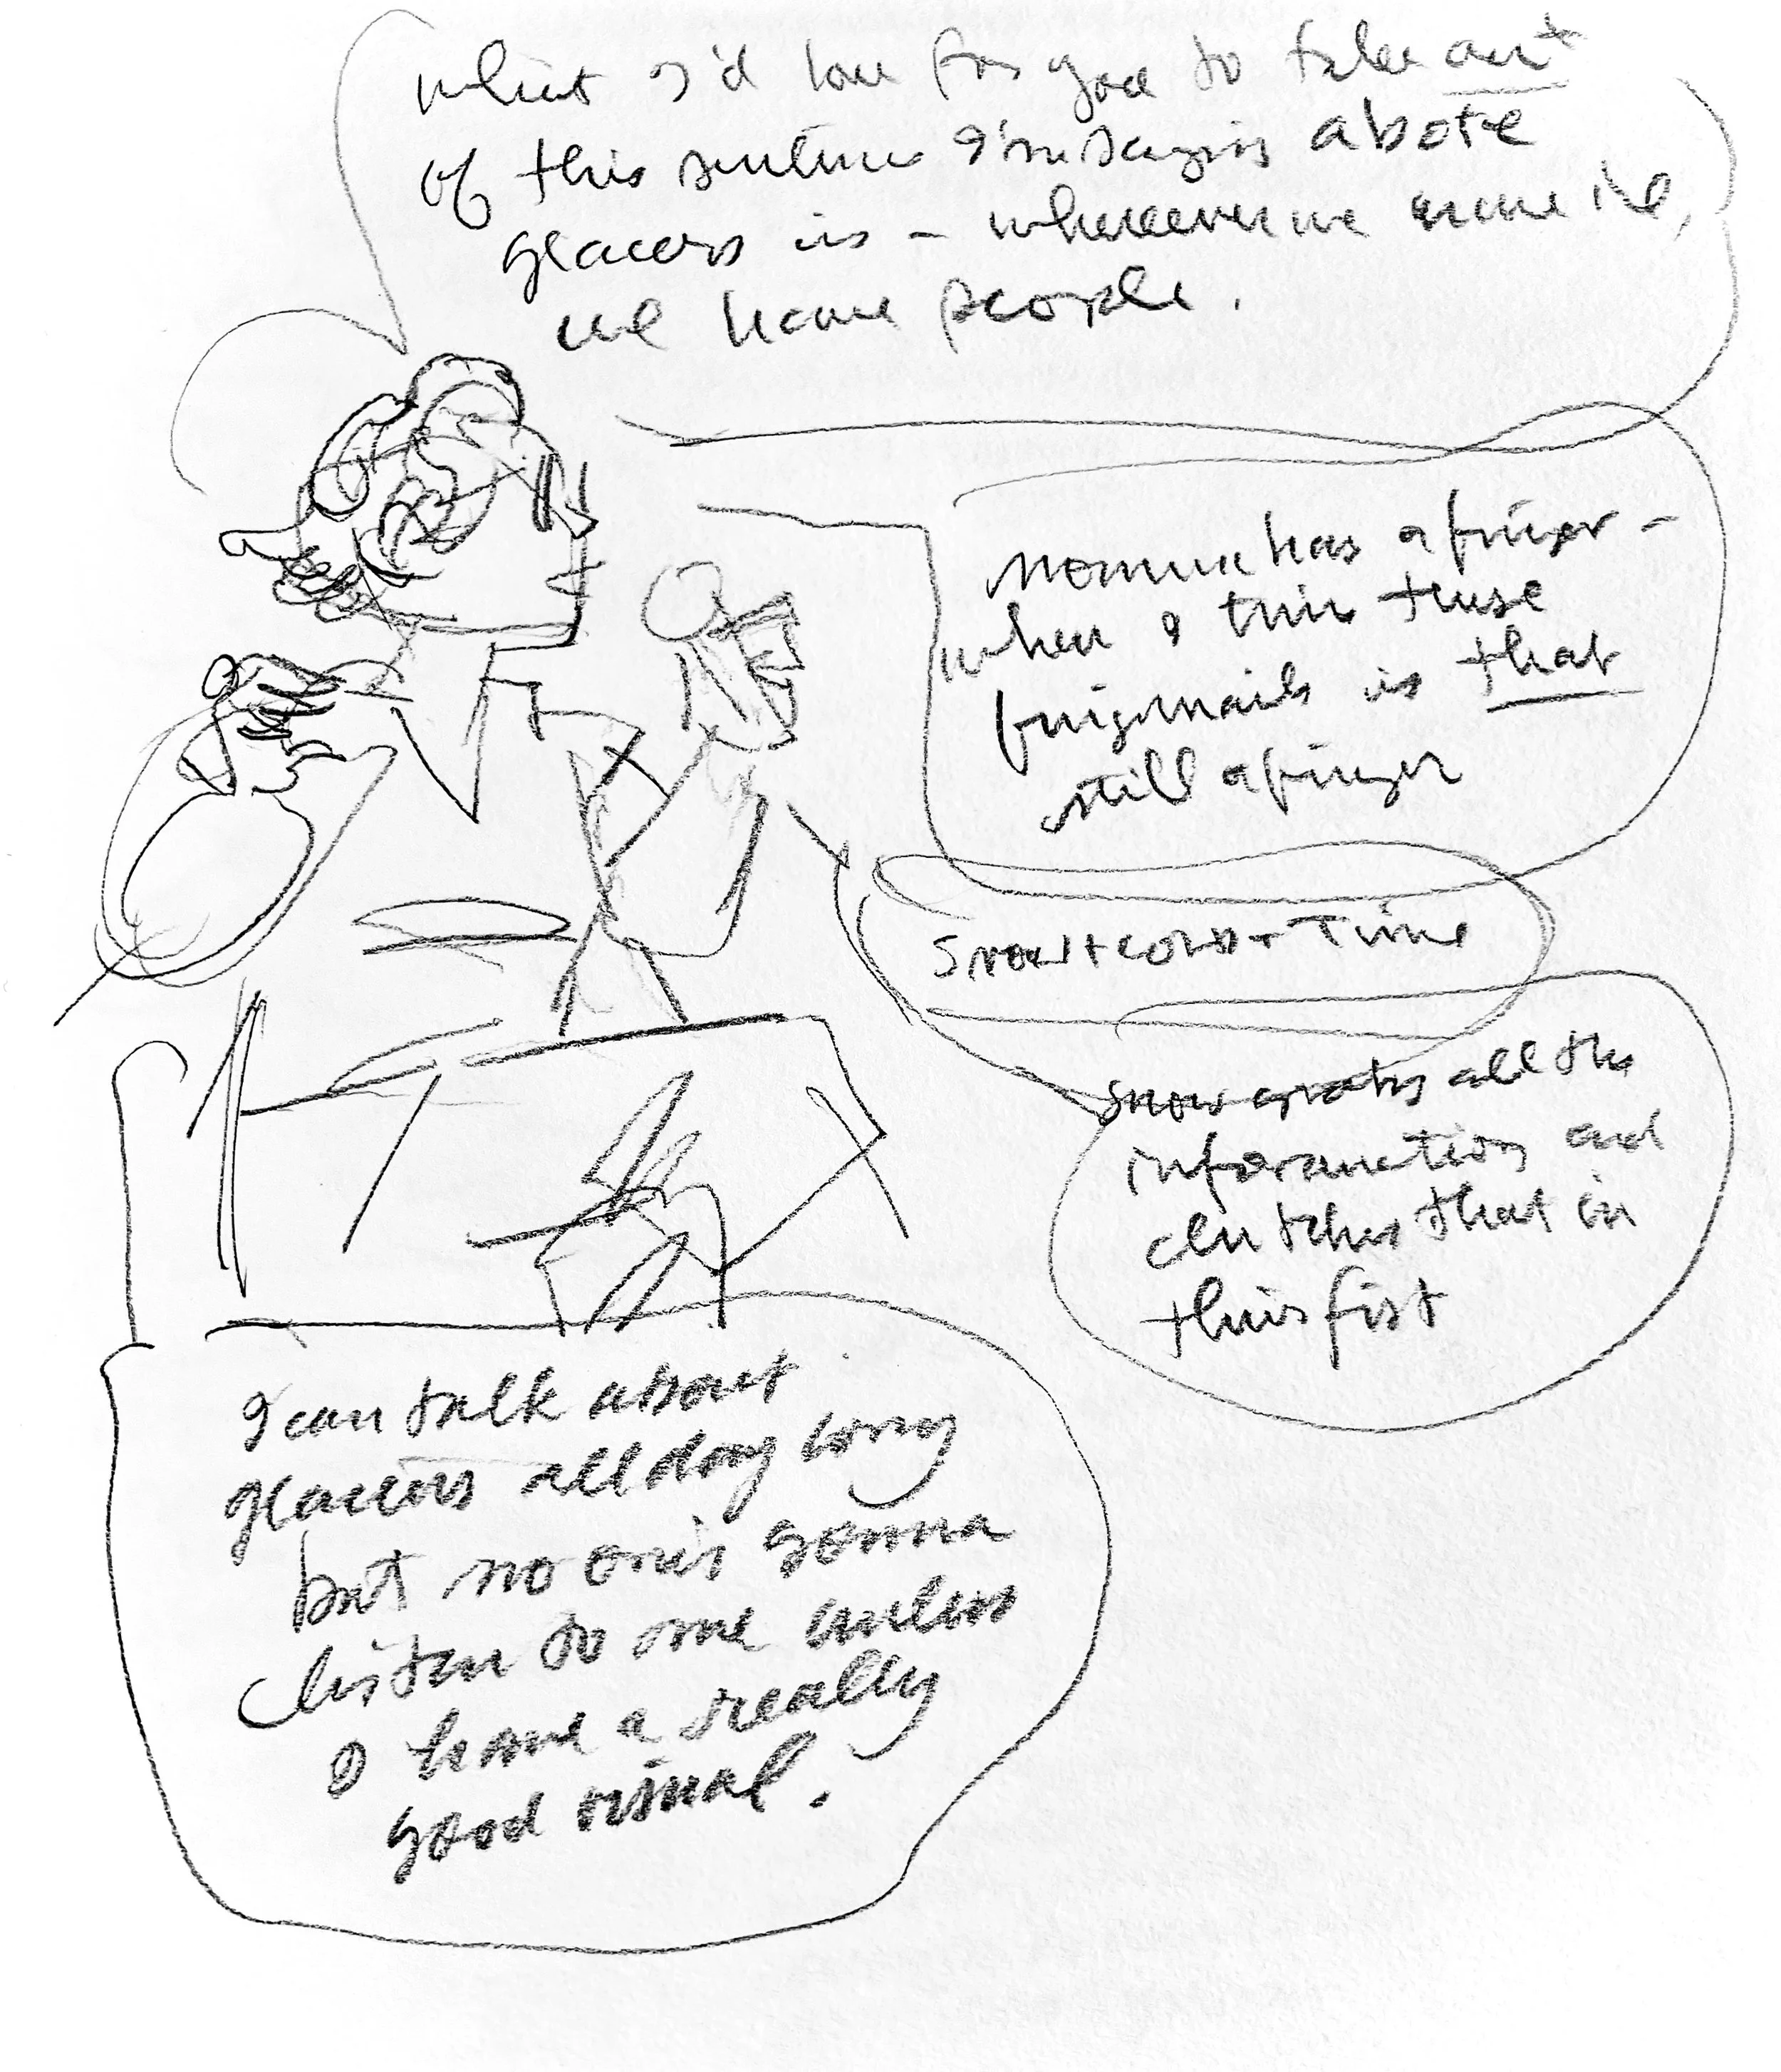 what I'd love for you to take out
of this sentence I'm saying about
glaciers is – wherever we have ice,
we have people.
has a finger –
when I trim these
fingernails is that
still a finger
Snow + cold + Time
snow grabs all the
information and
clutches that in
this fist
I can talk about
glaciers all day long
but no one's gonna
listen to me unless
I have a really
good visual.